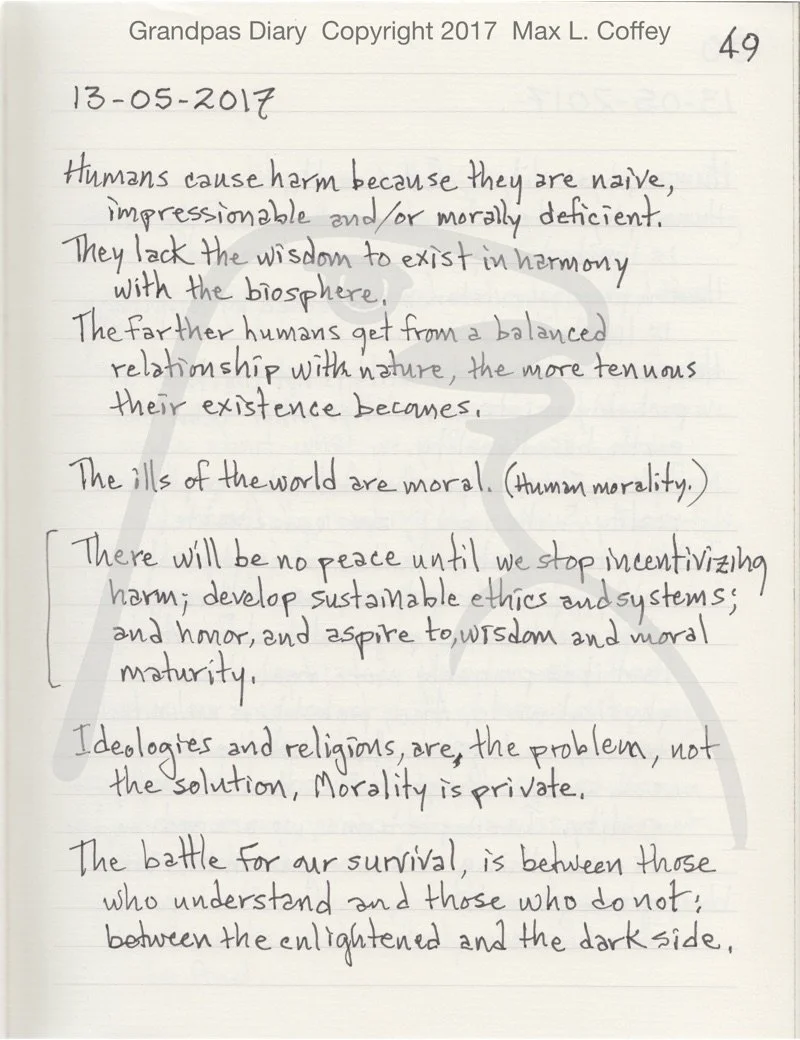 Grandpas Diary Copyright 2017 Max L. Coffey
49
13-05-2017
Humans cause harm because they are naive,
impressionable and/or morally deficient.
They lack the wisdom to exist in harmony
with the biosphere.
The farther humans get from a balanced
relationship with nature, the more tenuous
their existence becomes.
The ills of the world are moral. (Human morality.)
There will be no peace until we stop incentivizing
harm; develop sustainable ethics and systems;
and honor, and aspire to, wisdom and moral
maturity.
Ideologies and religions, are, the problem, not
the solution. Morality is private.
The battle for our survival, is between those
who understand and those who do not;
between the enlightened and the dark side.